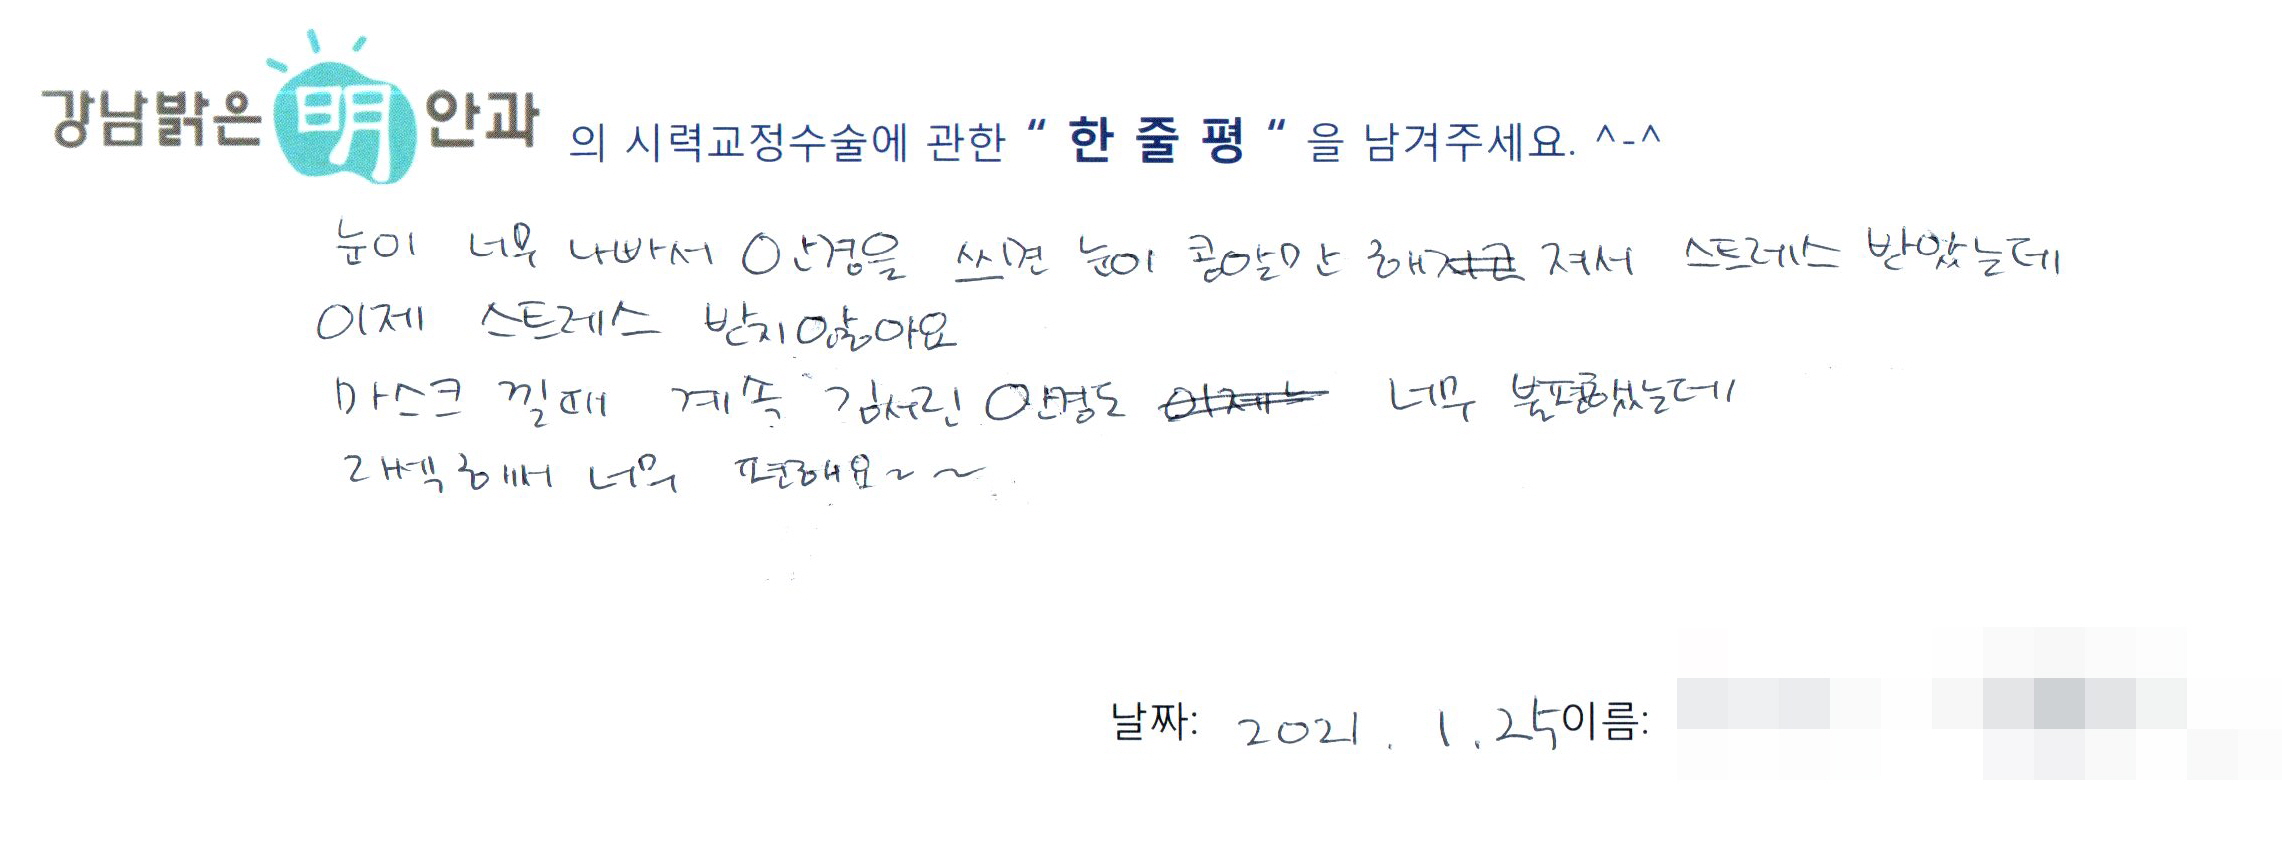 강남밝은明안과 의 시력교정수술에 관한 “ 한 줄 평 “ 을 남겨주세요. ^-^
눈이 너무 나빠서 안경을 쓰면 눈이 콩알만 해져서 스트레스 받았는데
이제 스트레스 받지않아요
마스크 낄때 계속 김서린 안경도 너무 불편했는데
라섹해써 너무 편해요~~
날짜: 2021. 1. 25 이름: